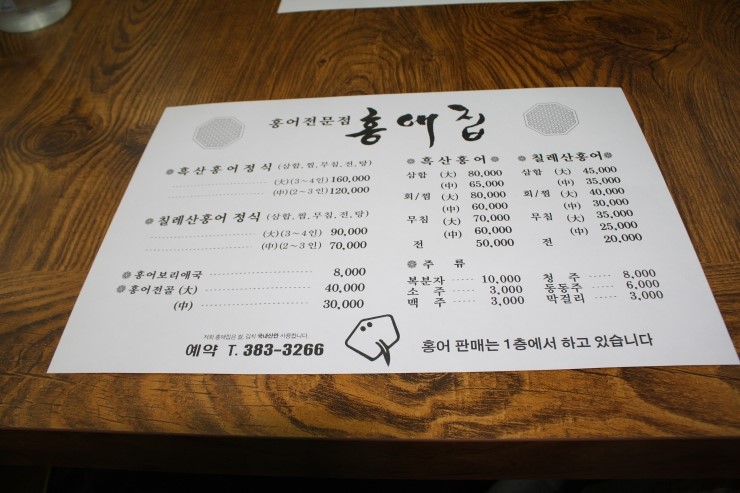 홍어전문점 홍애집
흑산홍어정식 (삼합, 찜, 무침, 전, 탕)
(大)(3~4인) 160,000
(中)(2~3인) 120,000
칠레산홍어 정식 (삼합, 찜, 무침, 전, 탕)
(大)(3~4인) 90,000
(中)(2~3인) 70,000
홍어보리애국 8,000
홍어전골 (大) 40,000
(中) 30,000
흑산홍어
삼합 (大) 80,000
(中) 65,000
회/찜 (大) 80,000
(中) 60,000
무침 (大) 70,000
(中) 60,000
전 50,000
칠레산홍어
삼합 (大) 45,000
(中) 35,000
회/찜 (大) 40,000
(中) 30,000
무침 (大) 35,000
(中) 25,000
전 20,000
주 류
복분자 10,000 청 주 8,000
소 주 3,000 동동주 6,000
맥 주 3,000 막걸리 3,000
저희 홍애집은 쌀, 김치 국내산만 사용합니다.
예약 T. 383-3266
홍어 판매는 1층에서 하고 있습니다